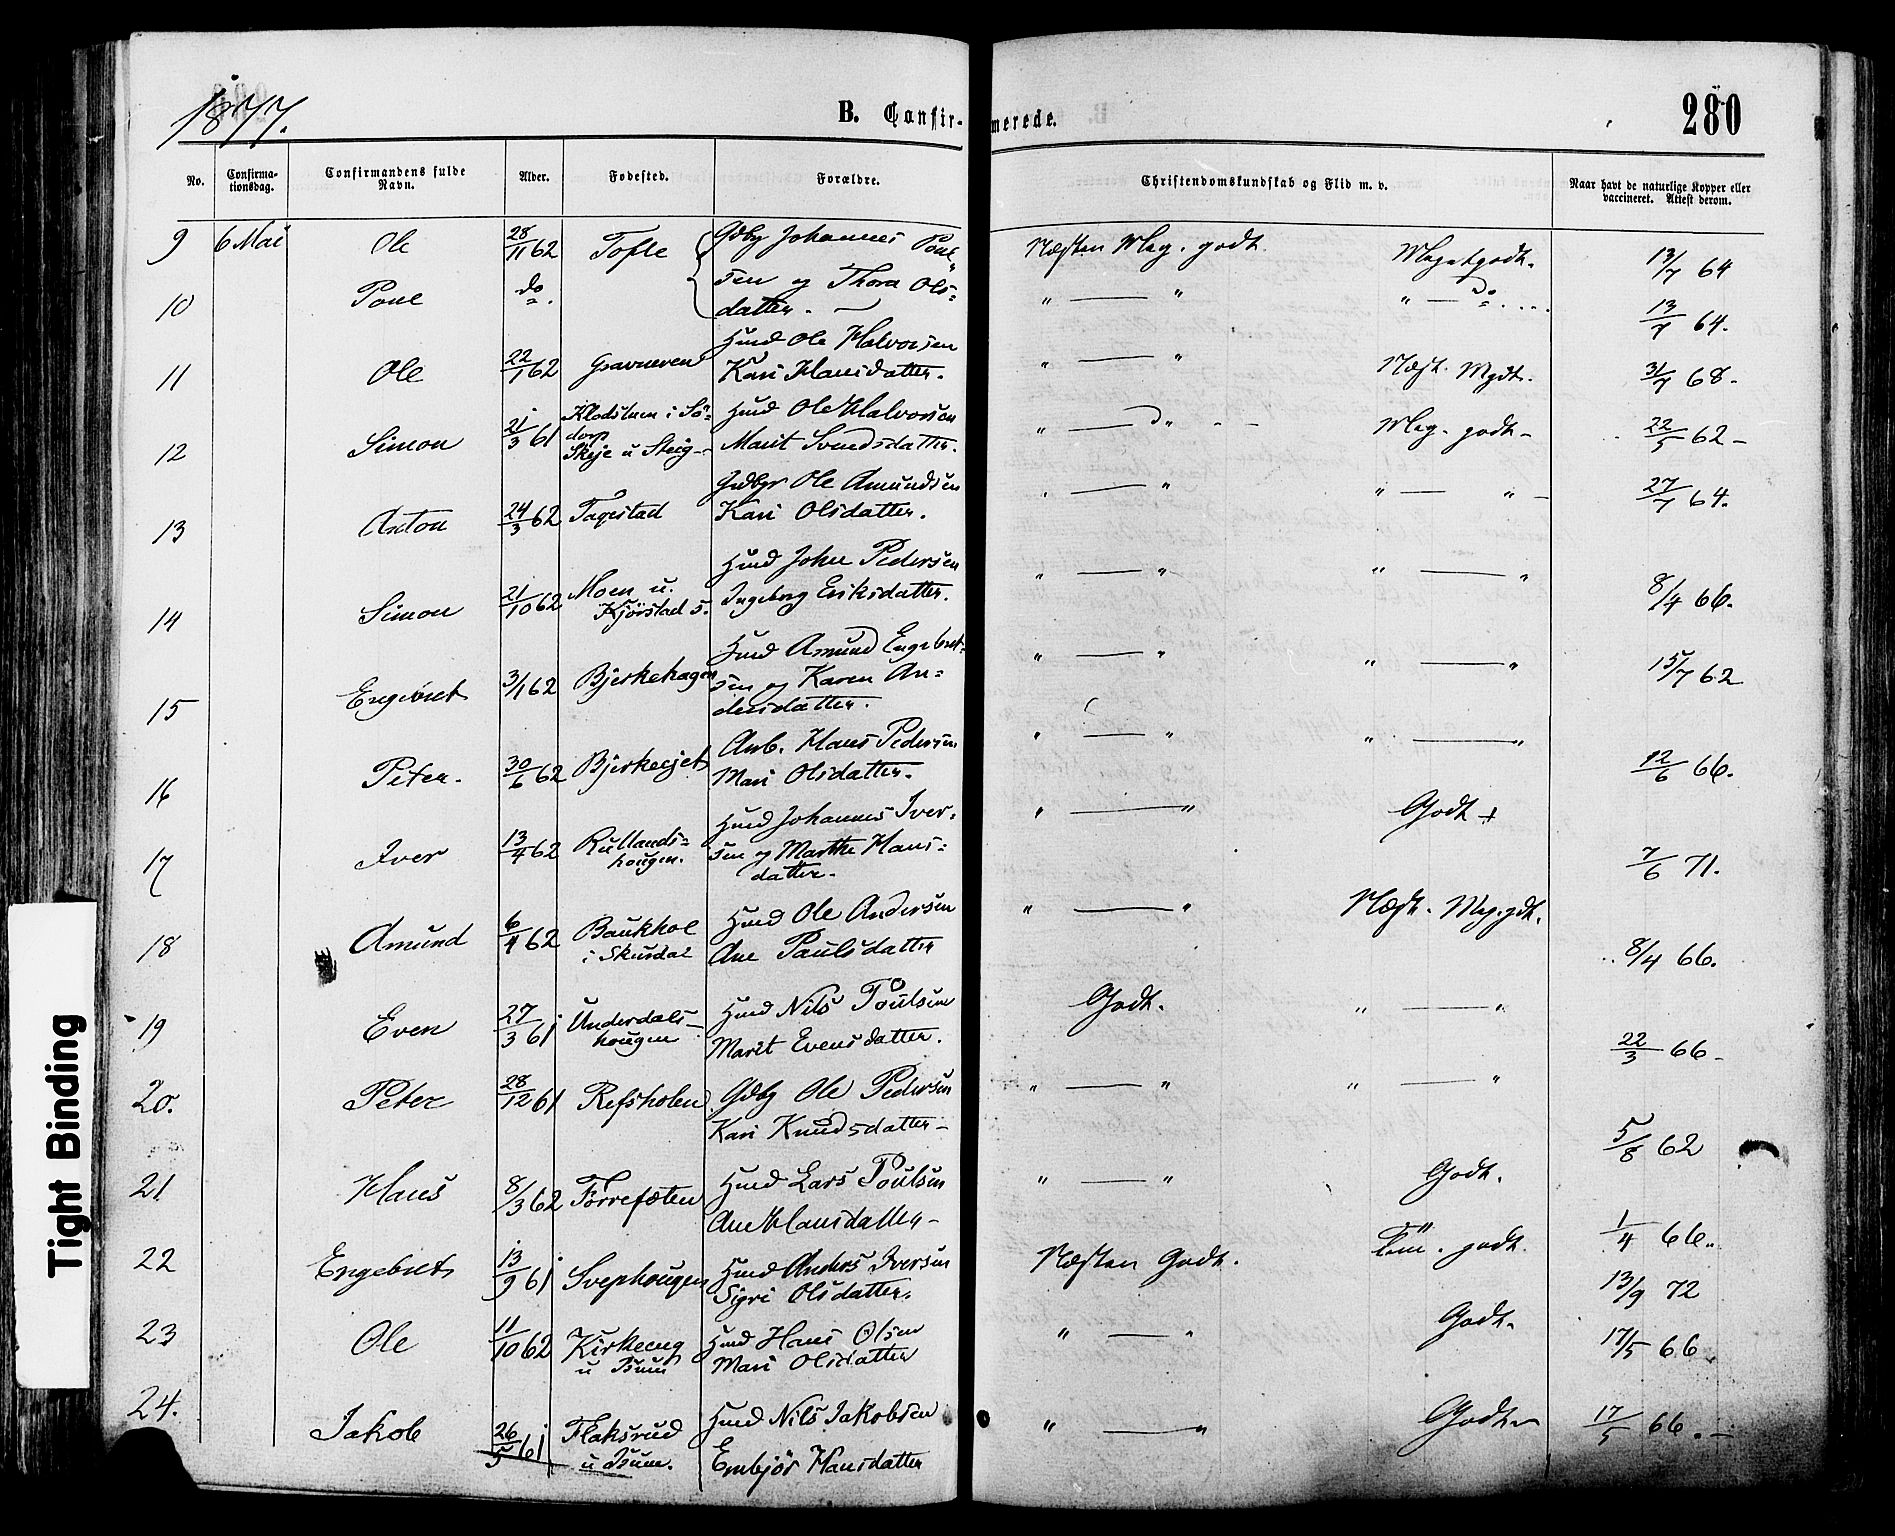 1877.
B. Confirmerede.
280
No.
Confirmationsdag.
Confirmandens fulde Navn.
Alder.
Fødested.
Forældre.
Christendomskundskab og Flid m. v.
Naar havt de naturlige Kopper eller vaccineret. Attest derom.
9 6 Mai Ole 28/11 62 Tofte Gdbr Johannes Poul- Næsten Meg. godt. Megetgodt. 13/7 64
10 Poul do. sen og Thora Ols- " — " " — Do 13/7 64.
datter. —
Husmd Ole Halvorsen
11 Ole 22/1 62 Kari Hansdatter. " — " Næst. Mgdt. 31/7 68.
Klodstuen i Sö- Husmd Ole Halvorsen
12 Simon 21/3 61 dorp Marit Svendsdatter. " — " Meg. godt — 22/5 62 —
Skeje u Steig
Ole Amundsen
13 Anton 24/3 62 Tagestad Kari Olsdatter. " — " " — " — 27/7 64.
Husmd John Pedersen
14 Simon 21/10 62 Moen u. Ingeborg Eriksdatter. " — " " — " 8/4 66.
Kjörstad S.
Husmd Amund Engebret-
15 Engebret 3/1 62 Bjerkehagen sen og Karen An- " — " " — " 15/7 62
dersdatter.
Arb. Hans Pedersen
16 Peter. 30/6 62 Mari Olsdatter. " — " " — " 12/6 66.
Husmd Johannes Iver-
17 Iver 13/4 62 Rullands- sen og Marthe Hans- " — " Godt + 7/6 71.
hougen. datter.
Husmd Ole Andersen
18 Amund 6/4 62 Baukhol Ane Paulsdatter " — " Næst. Meg.gdt. 8/4 66.
i Skurdal
Husmd Nils Poulsen
19 Even 27/3 61 Underdals- Marit Evensdatter. Godt. " — " 22/3 66 —
hougen
20. Peter 28/12 61 Refsholen Gdbr Ole Pedersen " — " " — " 5/8 62
Kari Knudsdatter —
21 Hans 8/3 62 Husmd Lars Poulsen " — " Godt. 1/4 66.
Ane Hansdatter —
22 Engebret 13/9 61 Svephougen Husmd Anders Iversen Næsten Godt. Tem. godt. 13/9 72
Sigri Olsdatter.
23 Ole 11/10 62 Kirkeeng Husmd Hans Olsen " — " Godt. 17/5 66
u Isum Mari Olsdatter
24. Jakob 26/5 61 Flaksrud Husmd Nils Jakobsen " — " Godt 17/5 66.
u Isum. Embjör Hansdatter
Tight Binding